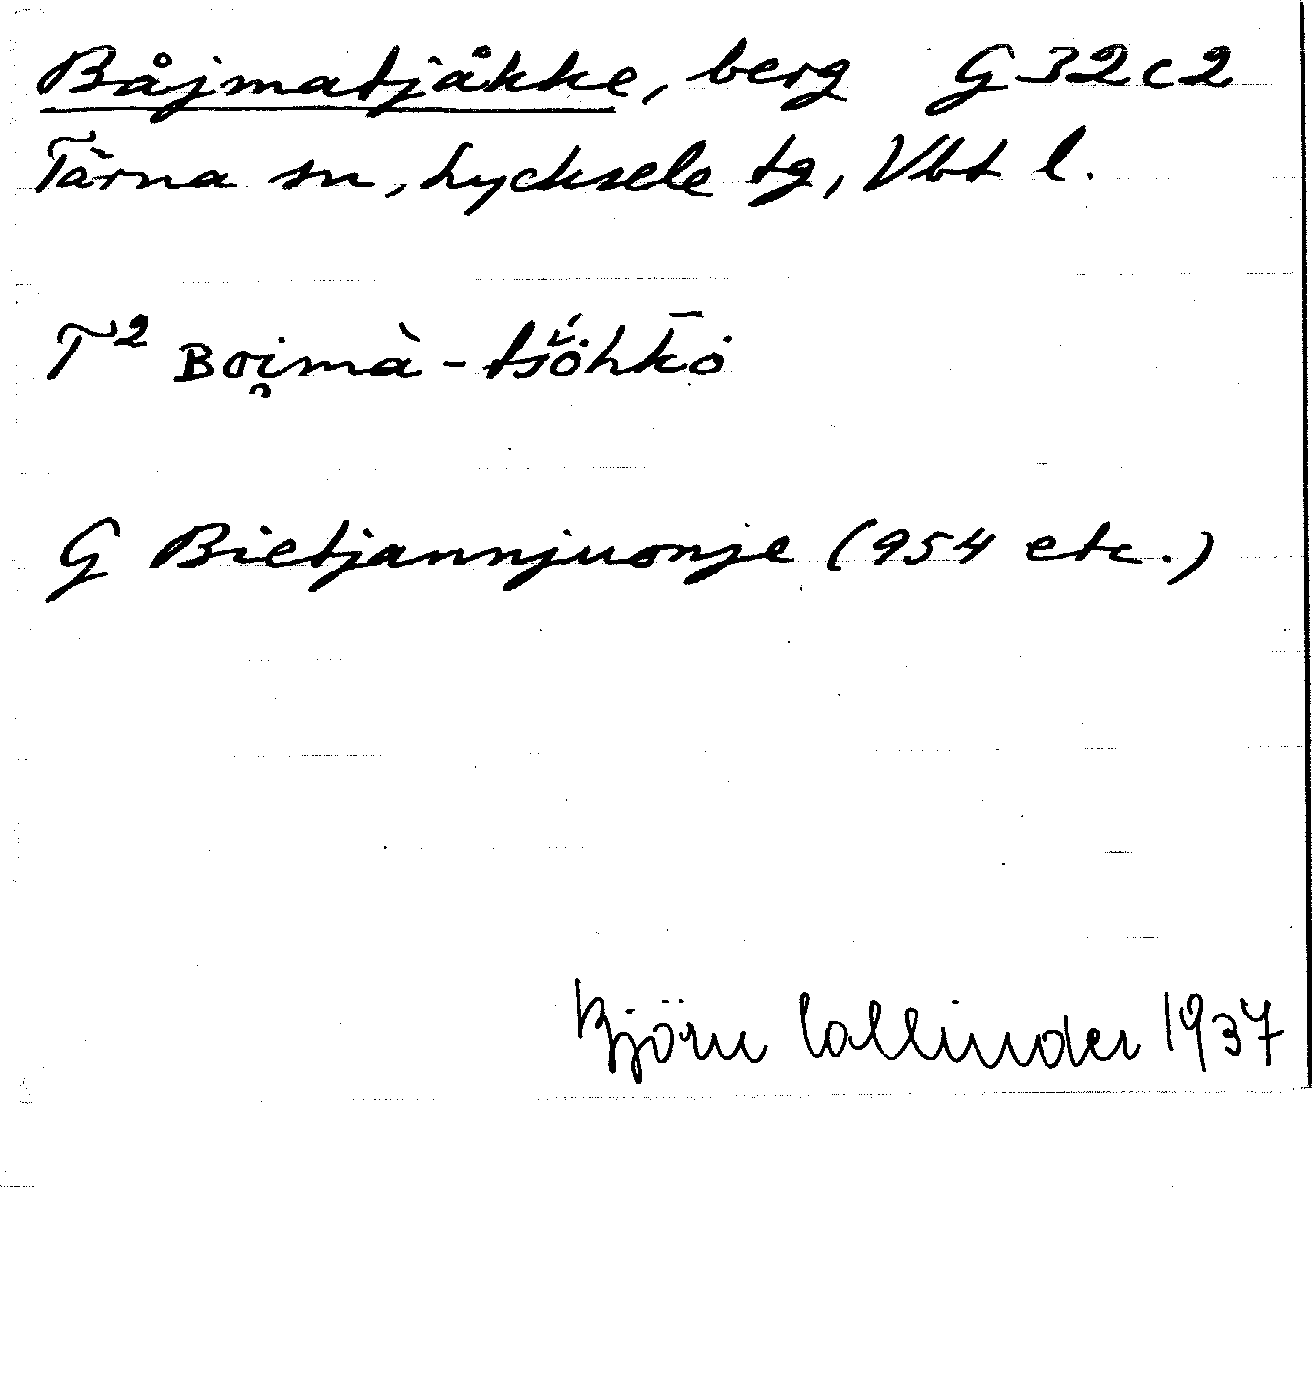 Båjmatjåkke, berg G 32 c 2
Tärna sn, Lycksele tg, Vbt l.
T² Boi̯mà-tšöhk̄ò
G Bietjannjuonje (954 etc.)
Björn Collinder 1937